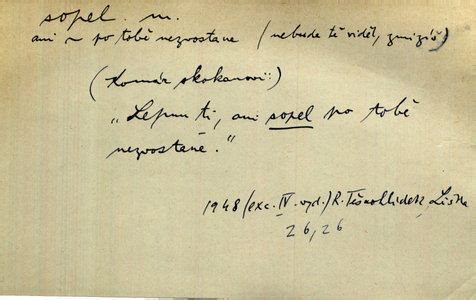 sopel. m.
ani ~ po tobě nezvostane (nebude tě vidět, zmizíš)
(komár skokanovi:)
„Lepnu ti, ani sopel po tobě
nezvostane."
1948 (exc. IV. vyd.) R. Těsnohlídek, Liška
26, 26